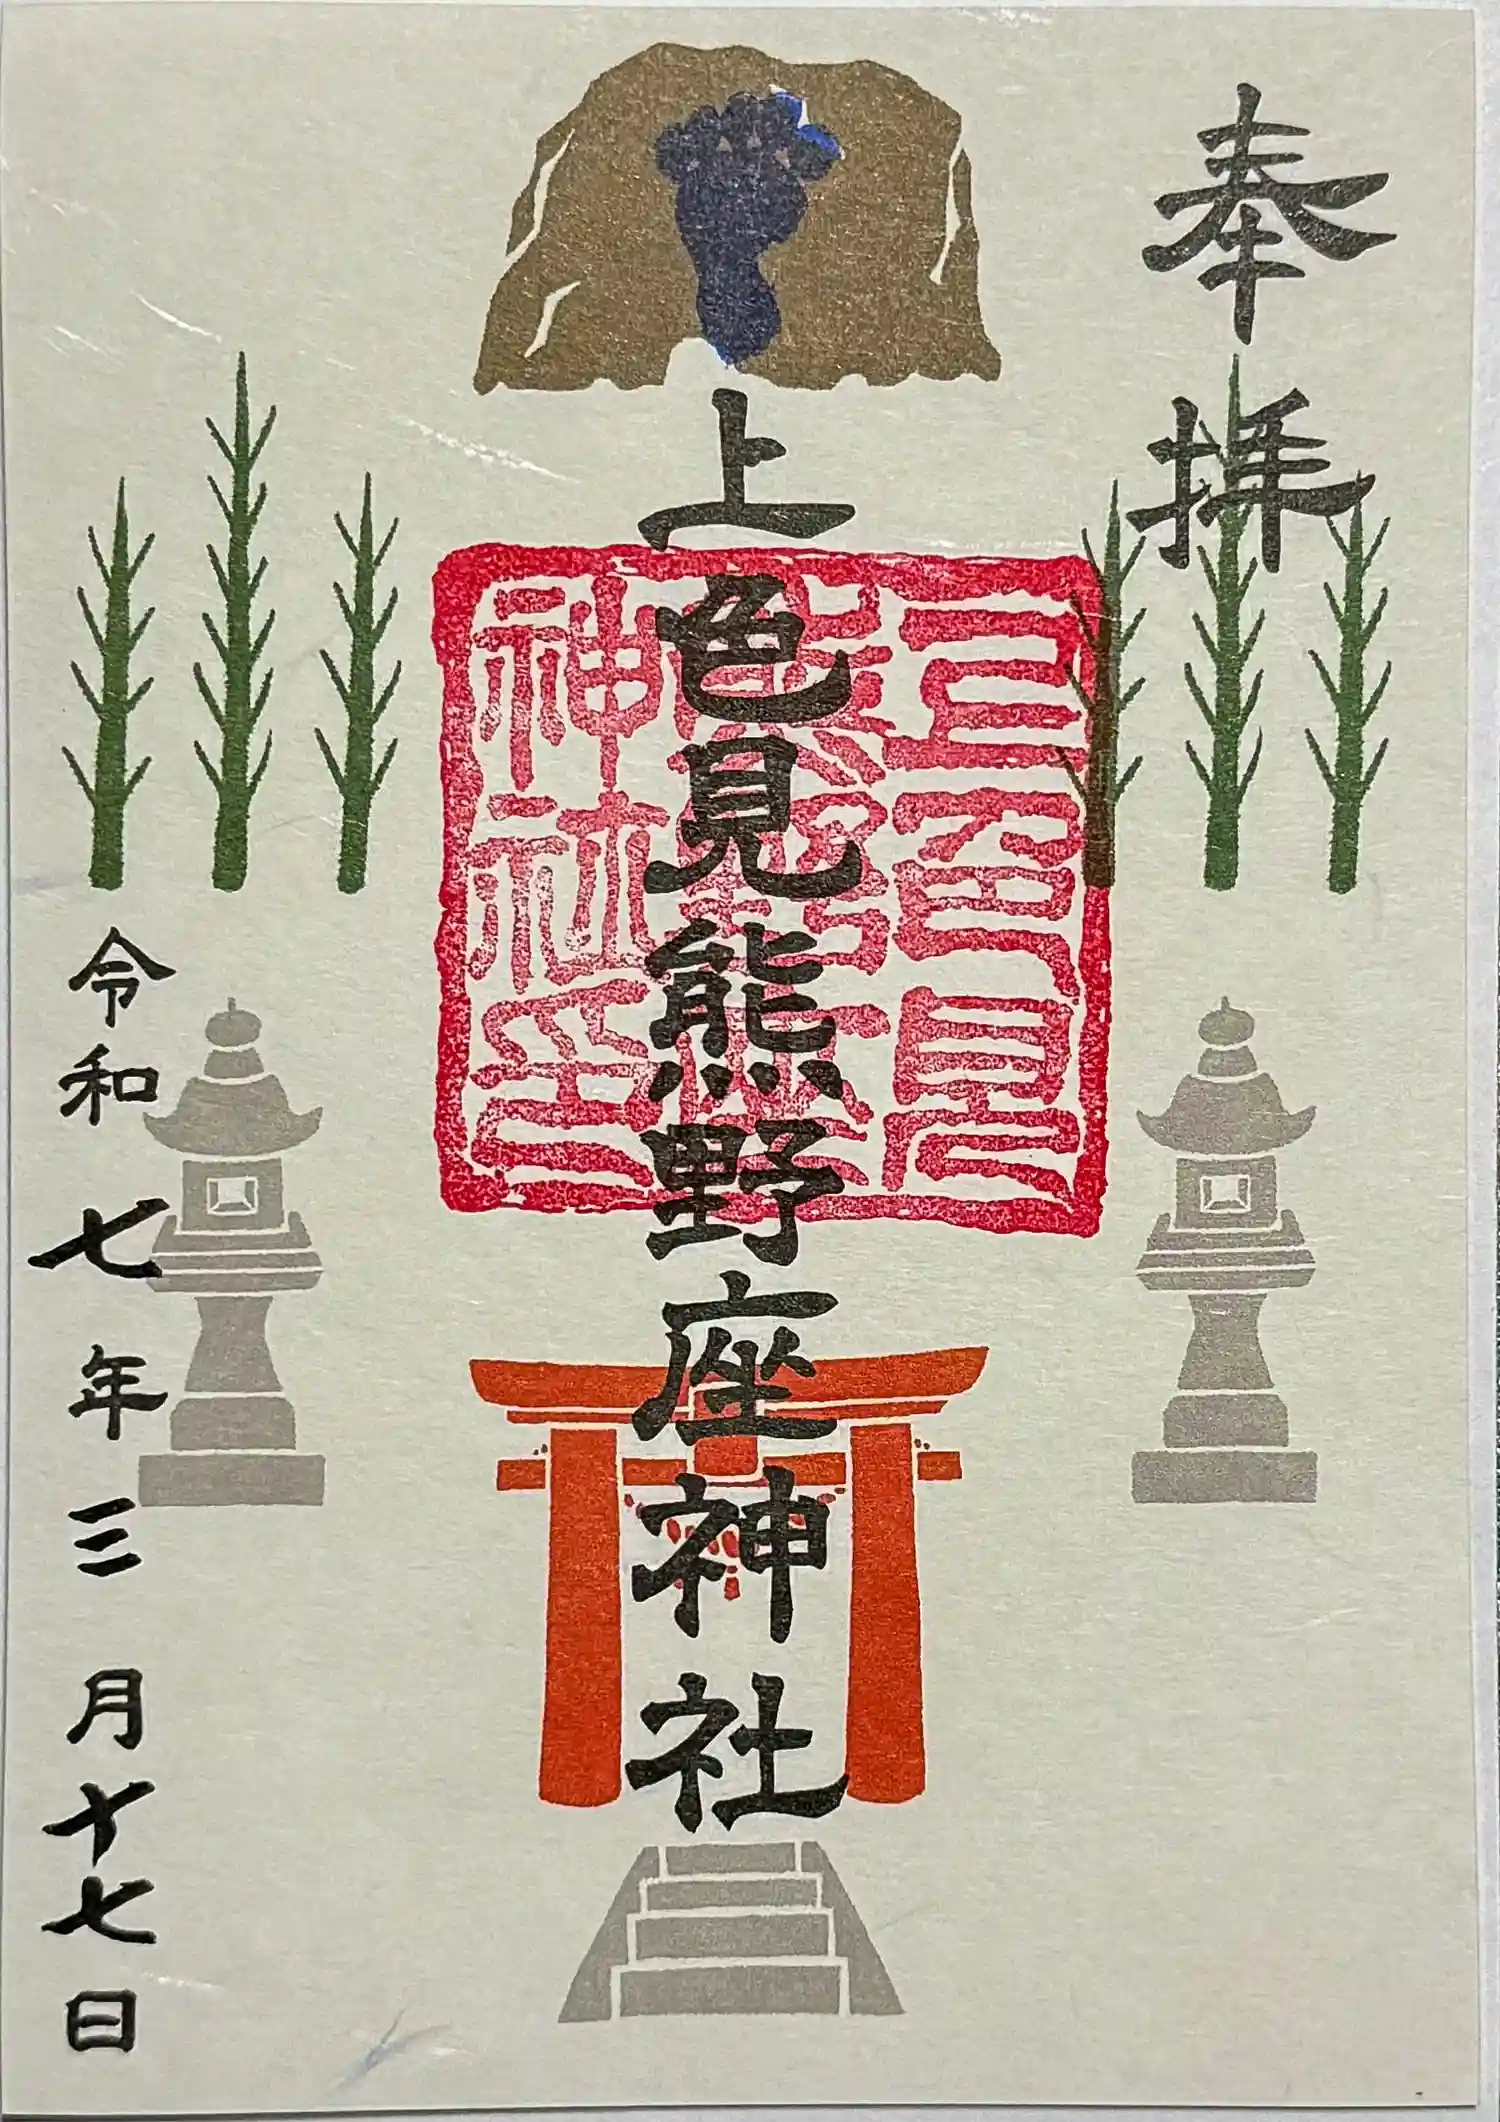 奉拝
上色見熊野座神社
上色見
熊野座
神社印
令和七年三月十七日